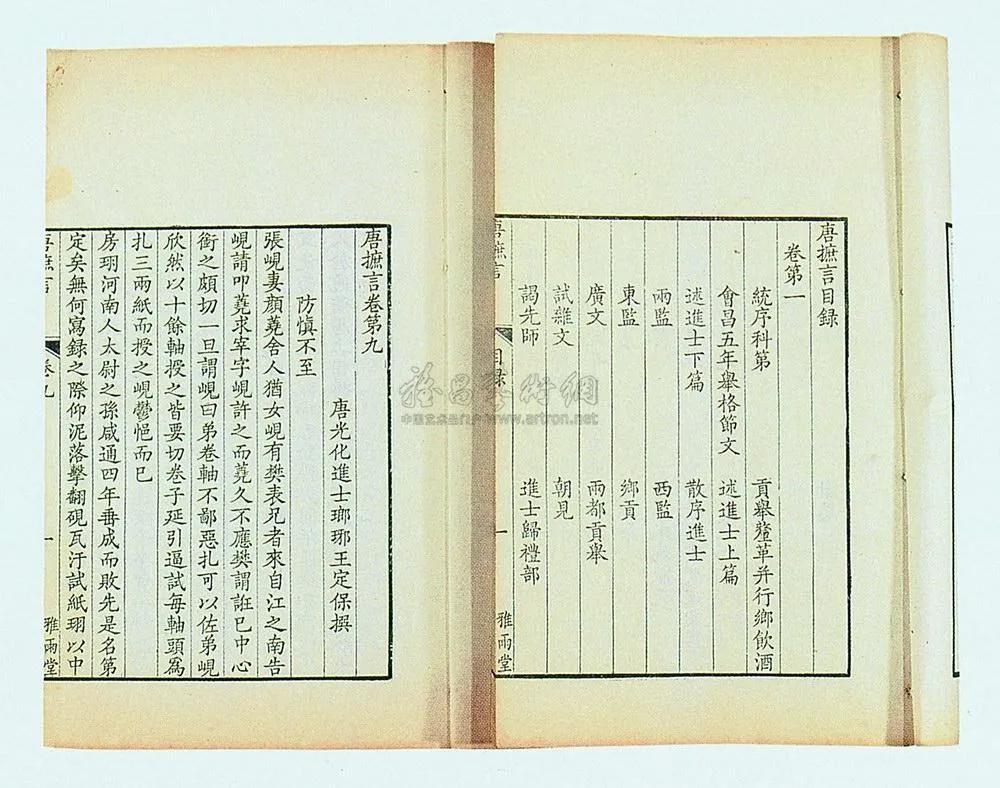 唐摭言目録
卷第一
統序科第　貢舉釐革并行鄉飲酒
會昌五年舉格節文　述進士上篇
述進士下篇　散序進士
兩監　西監
東監　鄉貢
廣文　兩都貢舉
試雜文　朝見
謁先師　進士歸禮部
唐摭言　目録　一　雅雨堂
唐摭言卷第九
唐光化進士瑯琊王定保撰
防慎不至
張峴妻顏蕘舍人猶女峴有樊表兄者來自江之南告
峴請叩蕘求宰字峴許之而蕘久不應樊謂誑已中心
銜之頗切一旦謂峴曰弟卷軸不鄙惡札可以佐弟峴
欣然以十餘軸授之皆要切卷子延引逼試每軸頭爲
札三兩紙而授之峴鬱悒而已
房珝河南人太尉之孫咸通四年垂成而敗先是名第
定矣無何寫録之際仰泥落擊翻硯瓦汙試紙珝以中
唐摭言　卷九　一　雅雨堂
中国艺术品门户-www.artron.net